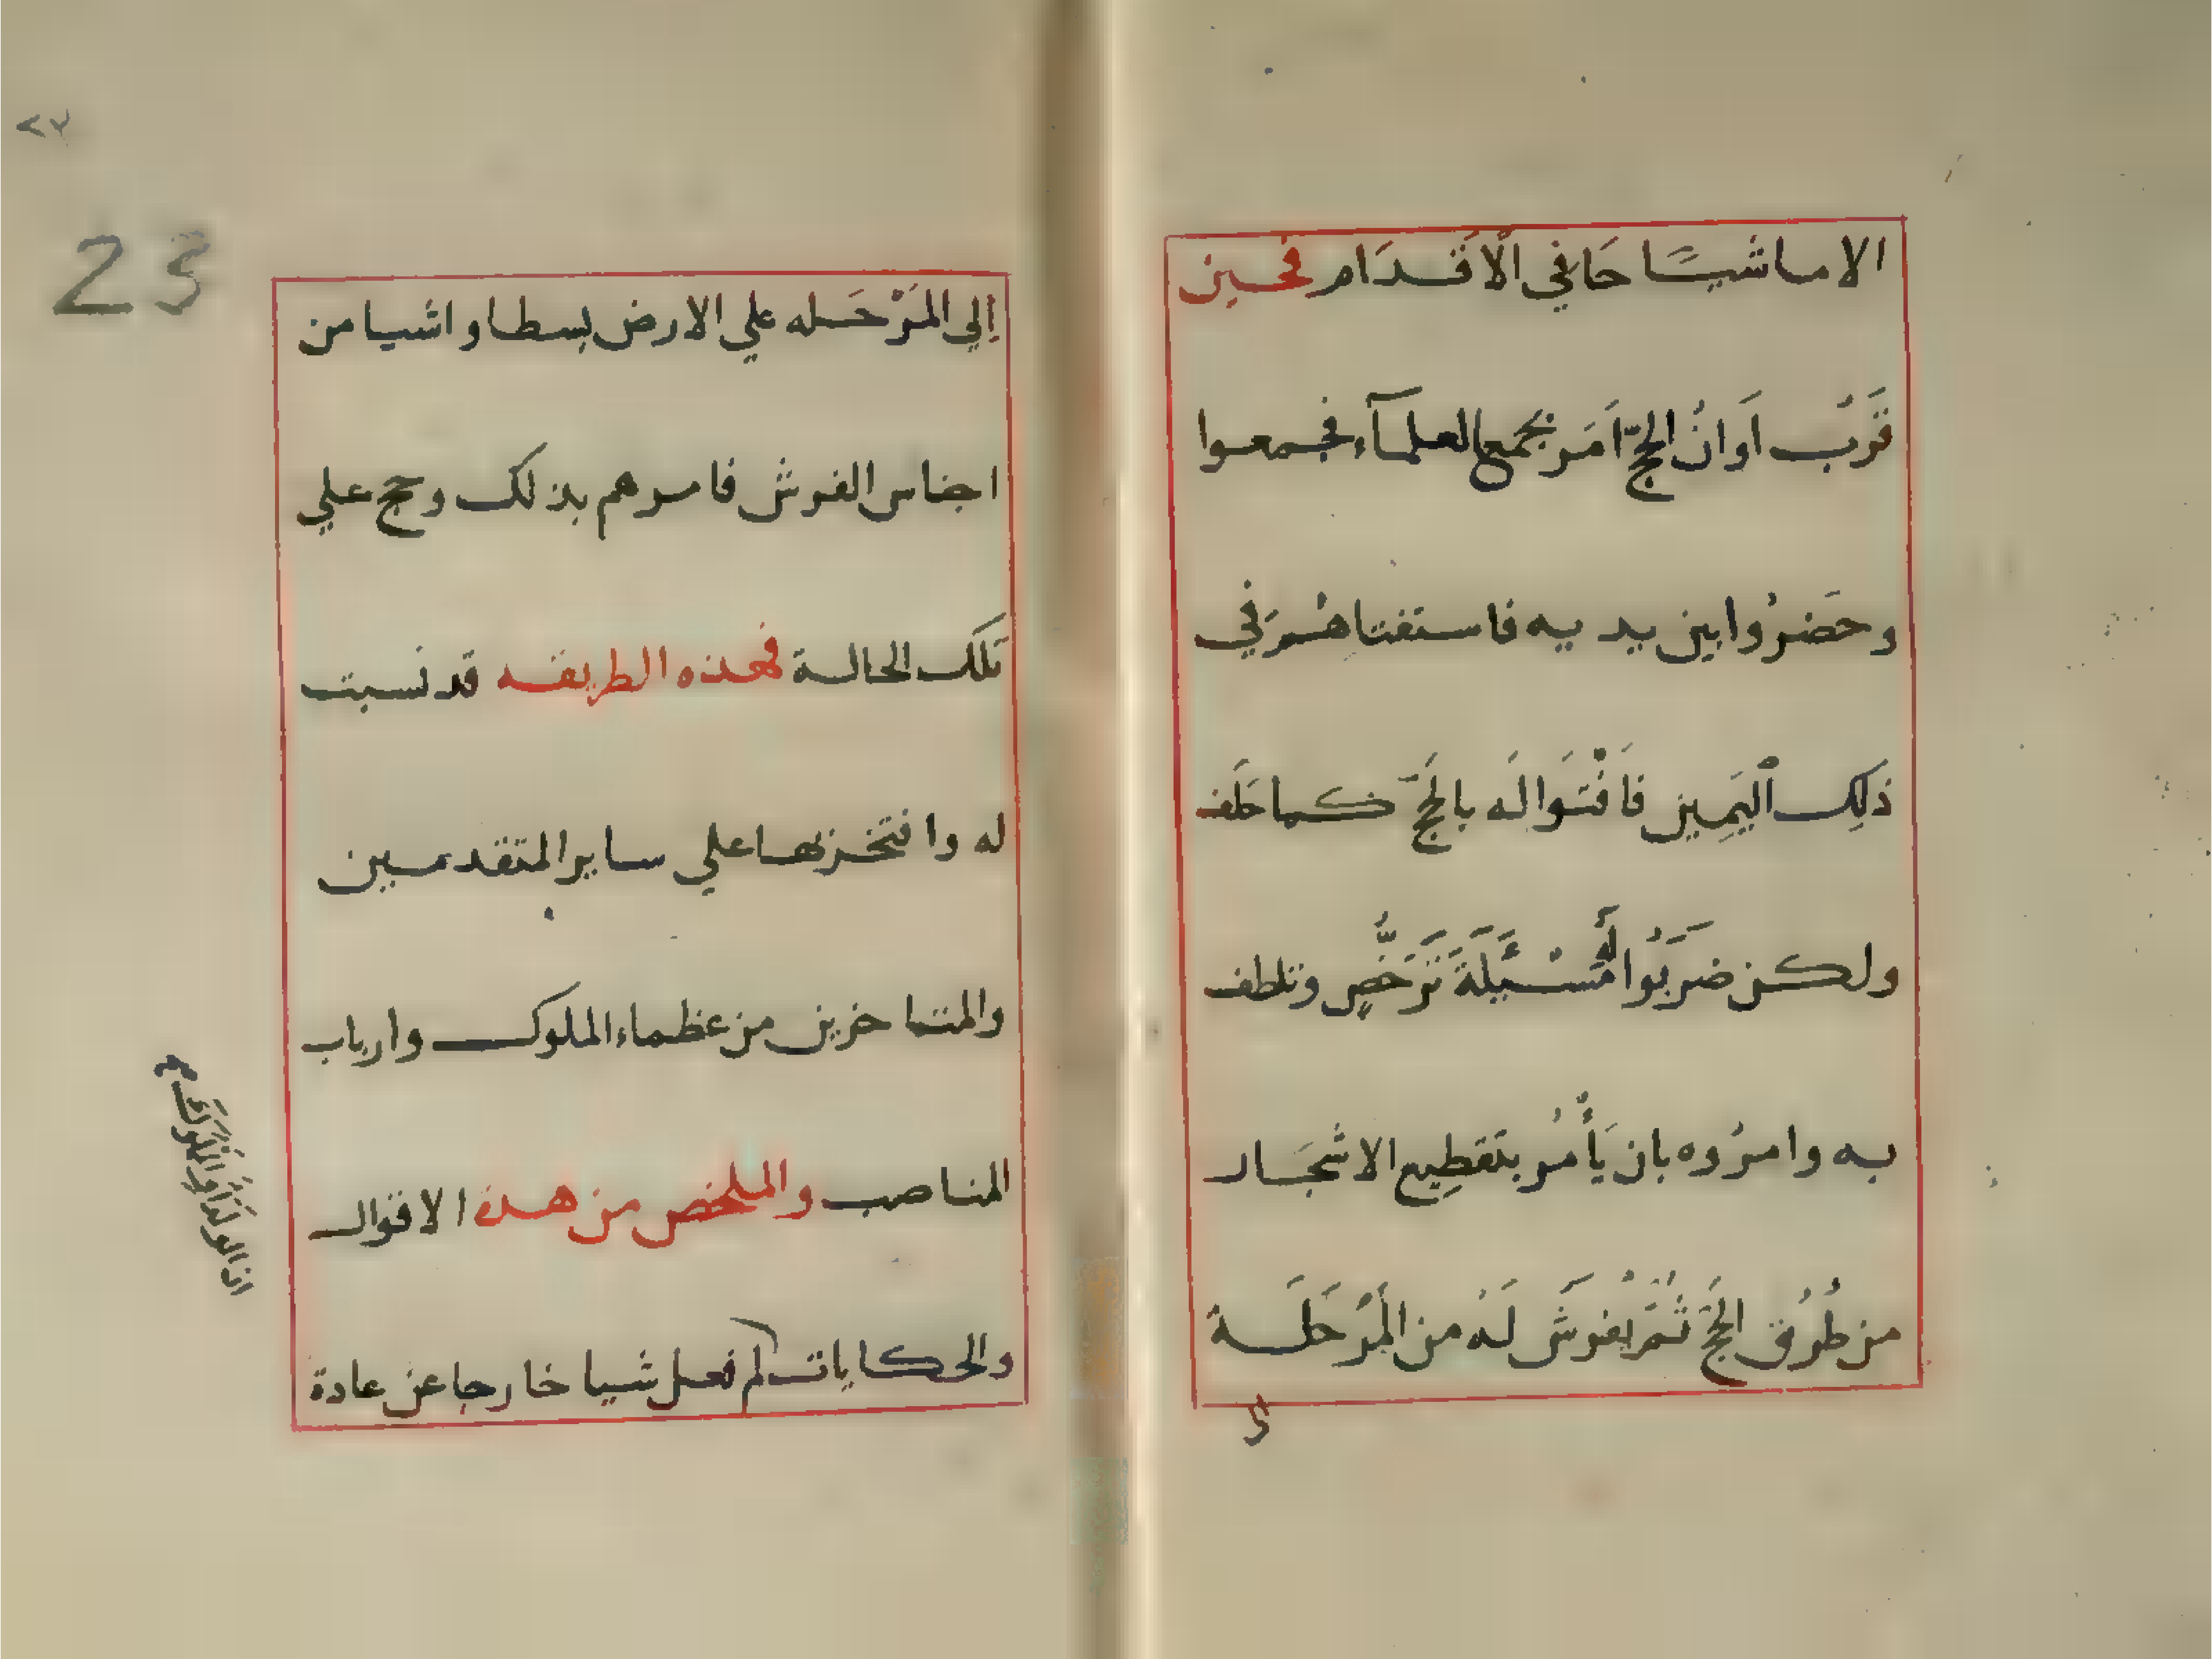 الا ماشيًا حَافي الاَقدَام فحين
قَرُبَ اَوانُ الحجّ اَمَر بجَمع العلمآء فجمعوا
وحَضرُوا بين يديه فاستفتاهُم في
ذلِك اليَمِين فَافْتَوا لَه بالحَجّ كما حَلَف
ولكن ضَرَبُوا لَهُ مَسْئَلَةَ تَرَخُّصٍ وتلطف
به وامرُوه بان يَأْمُر بتقطِيع الاشجَار
من طُرُق الحَجّ ثُمَّ يُفرَش لَهُ من المَرْحَلَة
اِلي المَرْحَله علي الارض بسطا واشيا من
اجناس الفرش فامرهم بذلك وحج علي
تلك الحالة فهذه الطريقه قد نسبت
له وافتخر بها علي ساير المتقدمين
والمتاخرين من عظماء الملوك وارباب
المناصب والملخص من هذه الاقوال
والحكايات لم فعل شيا خارجا عن عادة
٢٣
23